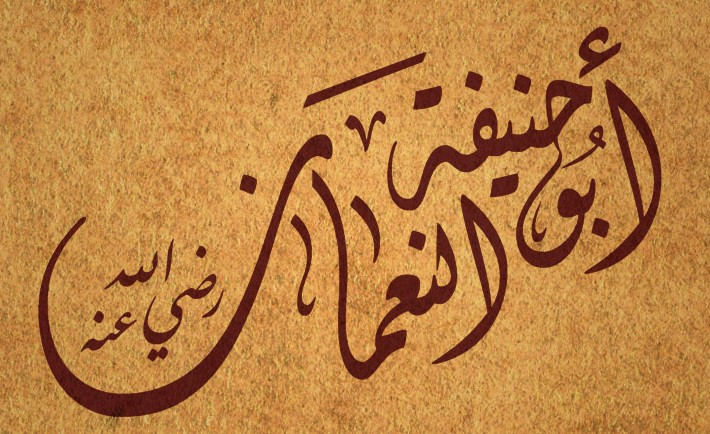 أبو حنيفة
النعمان
رضي الله
عنه